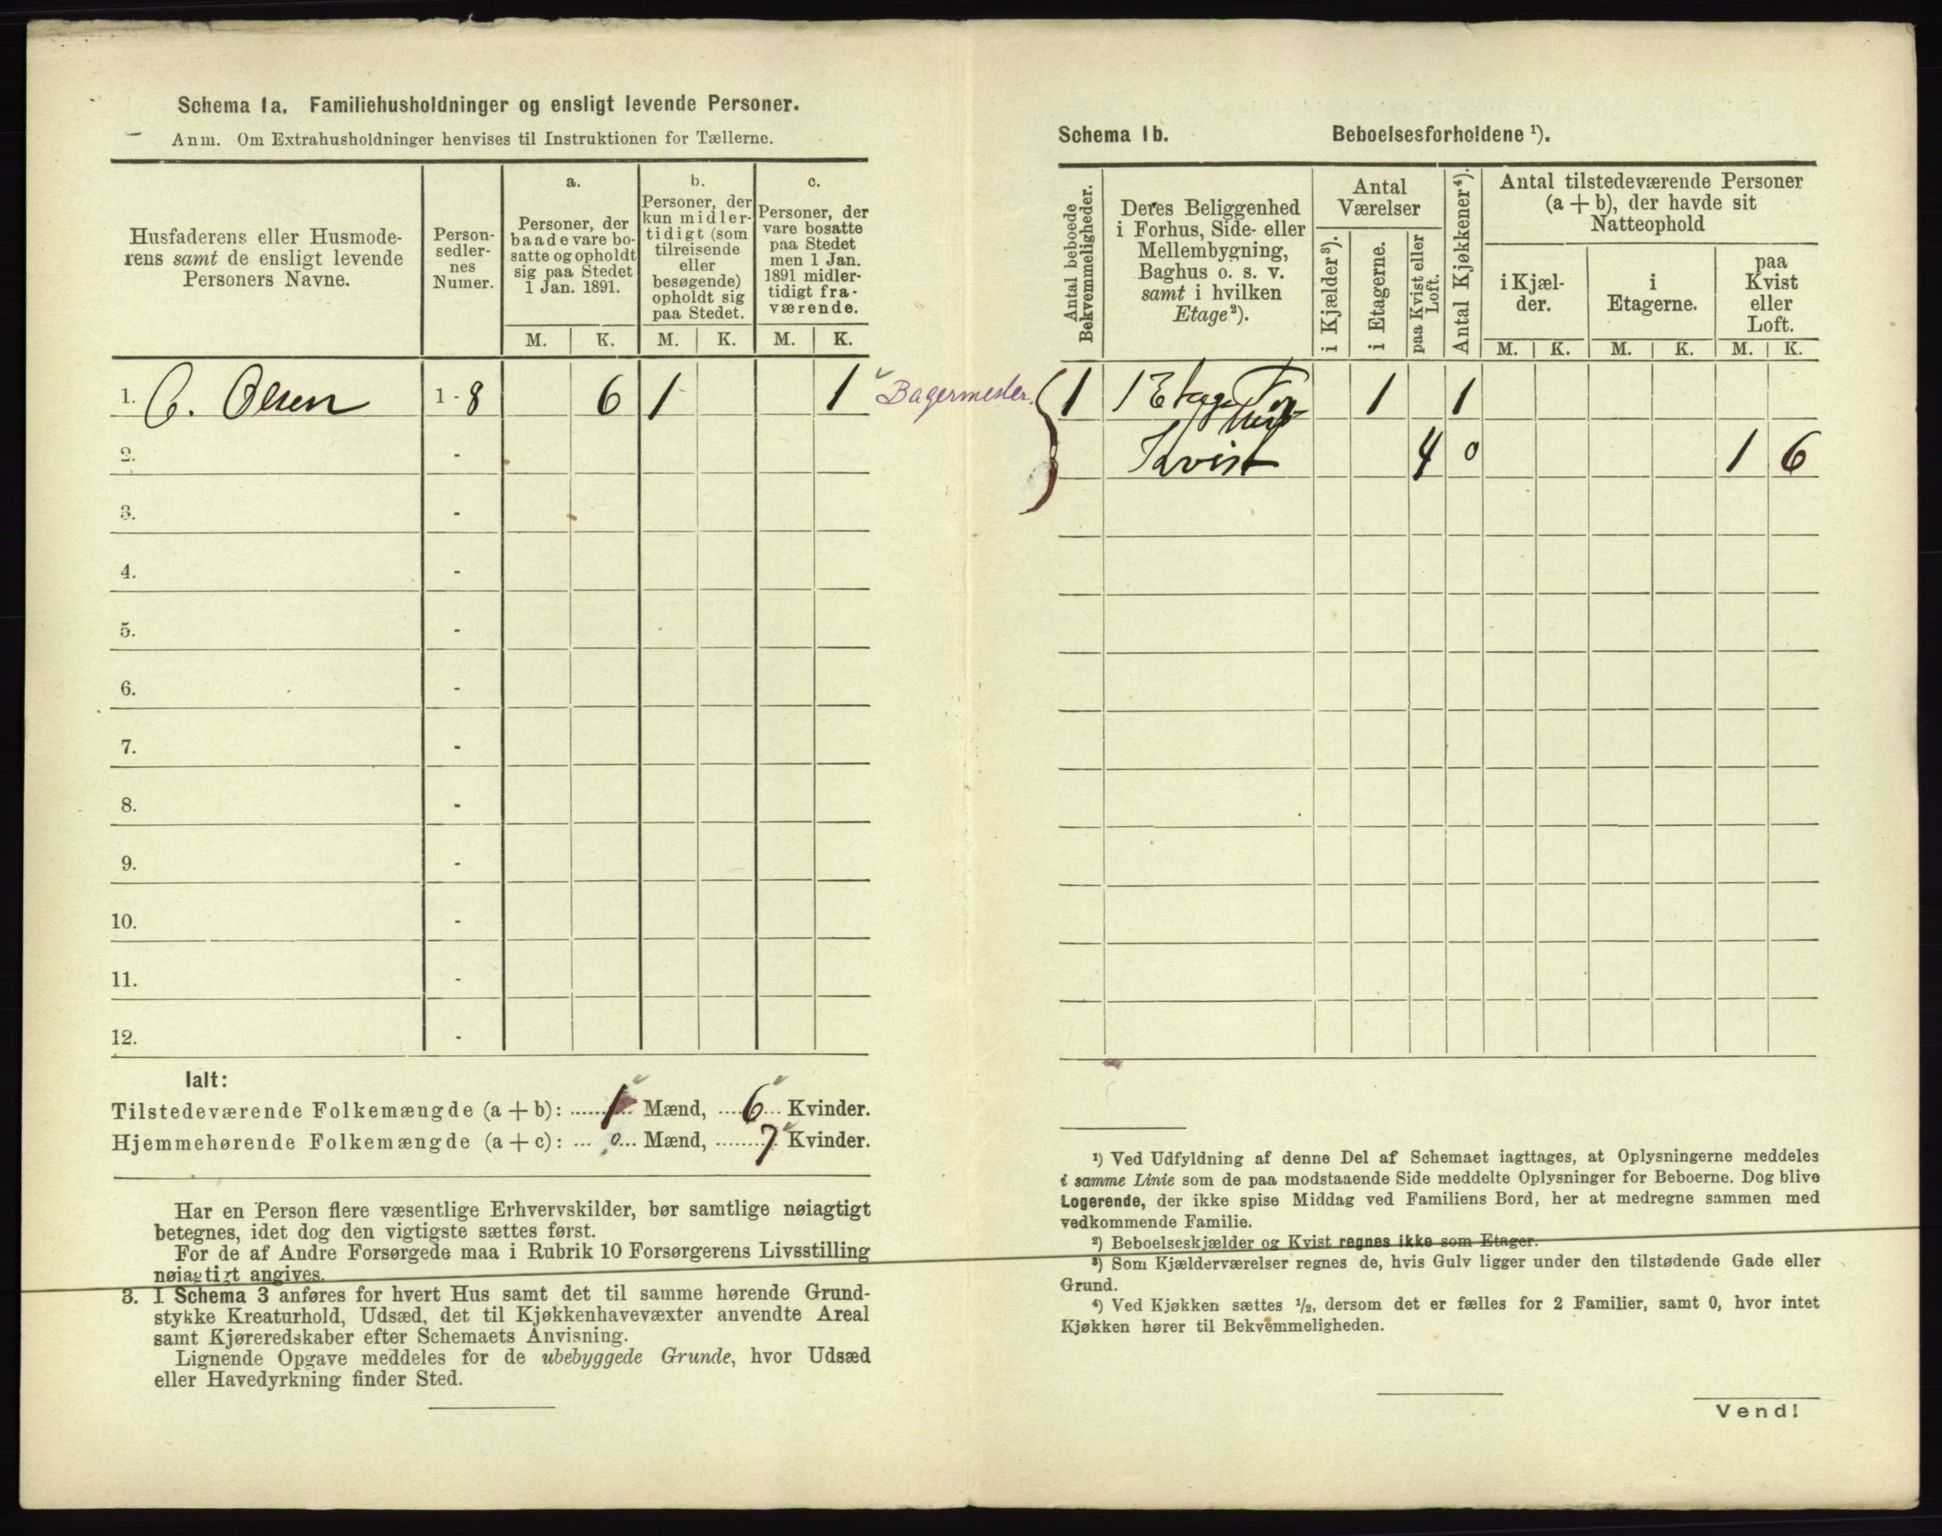 Schema 1a. Familiehusholdninger og ensligt levende Personer.
Anm. Om Extrahusholdninger henvises til Instruktionen for Tællerne.
Husfaderens eller Husmode-
rens samt de ensligt levende
Personers Navne.
Person-
sedler-
nes
Numer.
a.
Personer, der
baade vare bo-
satte og opholdt
sig paa Stedet
1 Jan. 1891.
b.
Personer, der
kun midler-
tidigt (som
tilreisende
eller
besøgende)
opholdt sig
paa Stedet.
c.
Personer, der
vare bosatte
paa Stedet
men 1 Jan.
1891 midler-
tidigt fra-
værende.
M. K. M. K. M. K.
1. C. Olsen 1-8 6 1 1 Bagermester.
2. -
3. -
4. -
5. -
6. -
7. -
8. -
9. -
10. -
11. -
12. -
Ialt:
Tilstedeværende Folkemængde (a + b): 1 Mænd, 6 Kvinder.
Hjemmehørende Folkemængde (a + c): 0 Mænd, 7 Kvinder.
Har en Person flere væsentlige Erhvervskilder, bør samtlige nøiagtigt
betegnes, idet dog den vigtigste sættes først.
For de af Andre Forsørgede maa i Rubrik 10 Forsørgerens Livsstilling
nøiagtigt angives.
3. I Schema 3 anføres for hvert Hus samt det til samme hørende Grund-
stykke Kreaturhold, Udsæd, det til Kjøkkenhavevæxter anvendte Areal
samt Kjøreredskaber efter Schemaets Anvisning.
Lignende Opgave meddeles for de ubebyggede Grunde, hvor Udsæd
eller Havedyrkning finder Sted.
Schema 1b. Beboelsesforholdene ¹).
Antal beboede
Bekvemmeligheder.
Deres Beliggenhed
i Forhus, Side- eller
Mellembygning,
Baghus o. s. v.
samt i hvilken
Etage²).
Antal
Værelser
i Kjælder³).
i Etagerne.
paa Kvist eller
Loft.
Antal Kjøkkener⁴).
Antal tilstedeværende Personer
(a + b), der havde sit
Natteophold
i Kjæl-
der.
i
Etagerne.
paa
Kvist
eller
Loft.
M. K. M. K. M. K.
1 1 Etage For
hus 1 1
Kvist 4 0 1 6
¹) Ved Udfyldning af denne Del af Schemaet iagttages, at Oplysningerne meddeles
i samme Linie som de paa modstaaende Side meddelte Oplysninger for Beboerne. Dog blive
Logerende, der ikke spise Middag ved Familiens Bord, her at medregne sammen med
vedkommende Familie.
²) Beboelseskjælder og Kvist regnes ikke som Etager.
³) Som Kjælderværelser regnes de, hvis Gulv ligger under den tilstødende Gade eller
Grund.
⁴) Ved Kjøkken sættes ½, dersom det er fælles for 2 Familier, samt 0, hvor intet
Kjøkken hører til Bekvemmeligheden.
Vend!